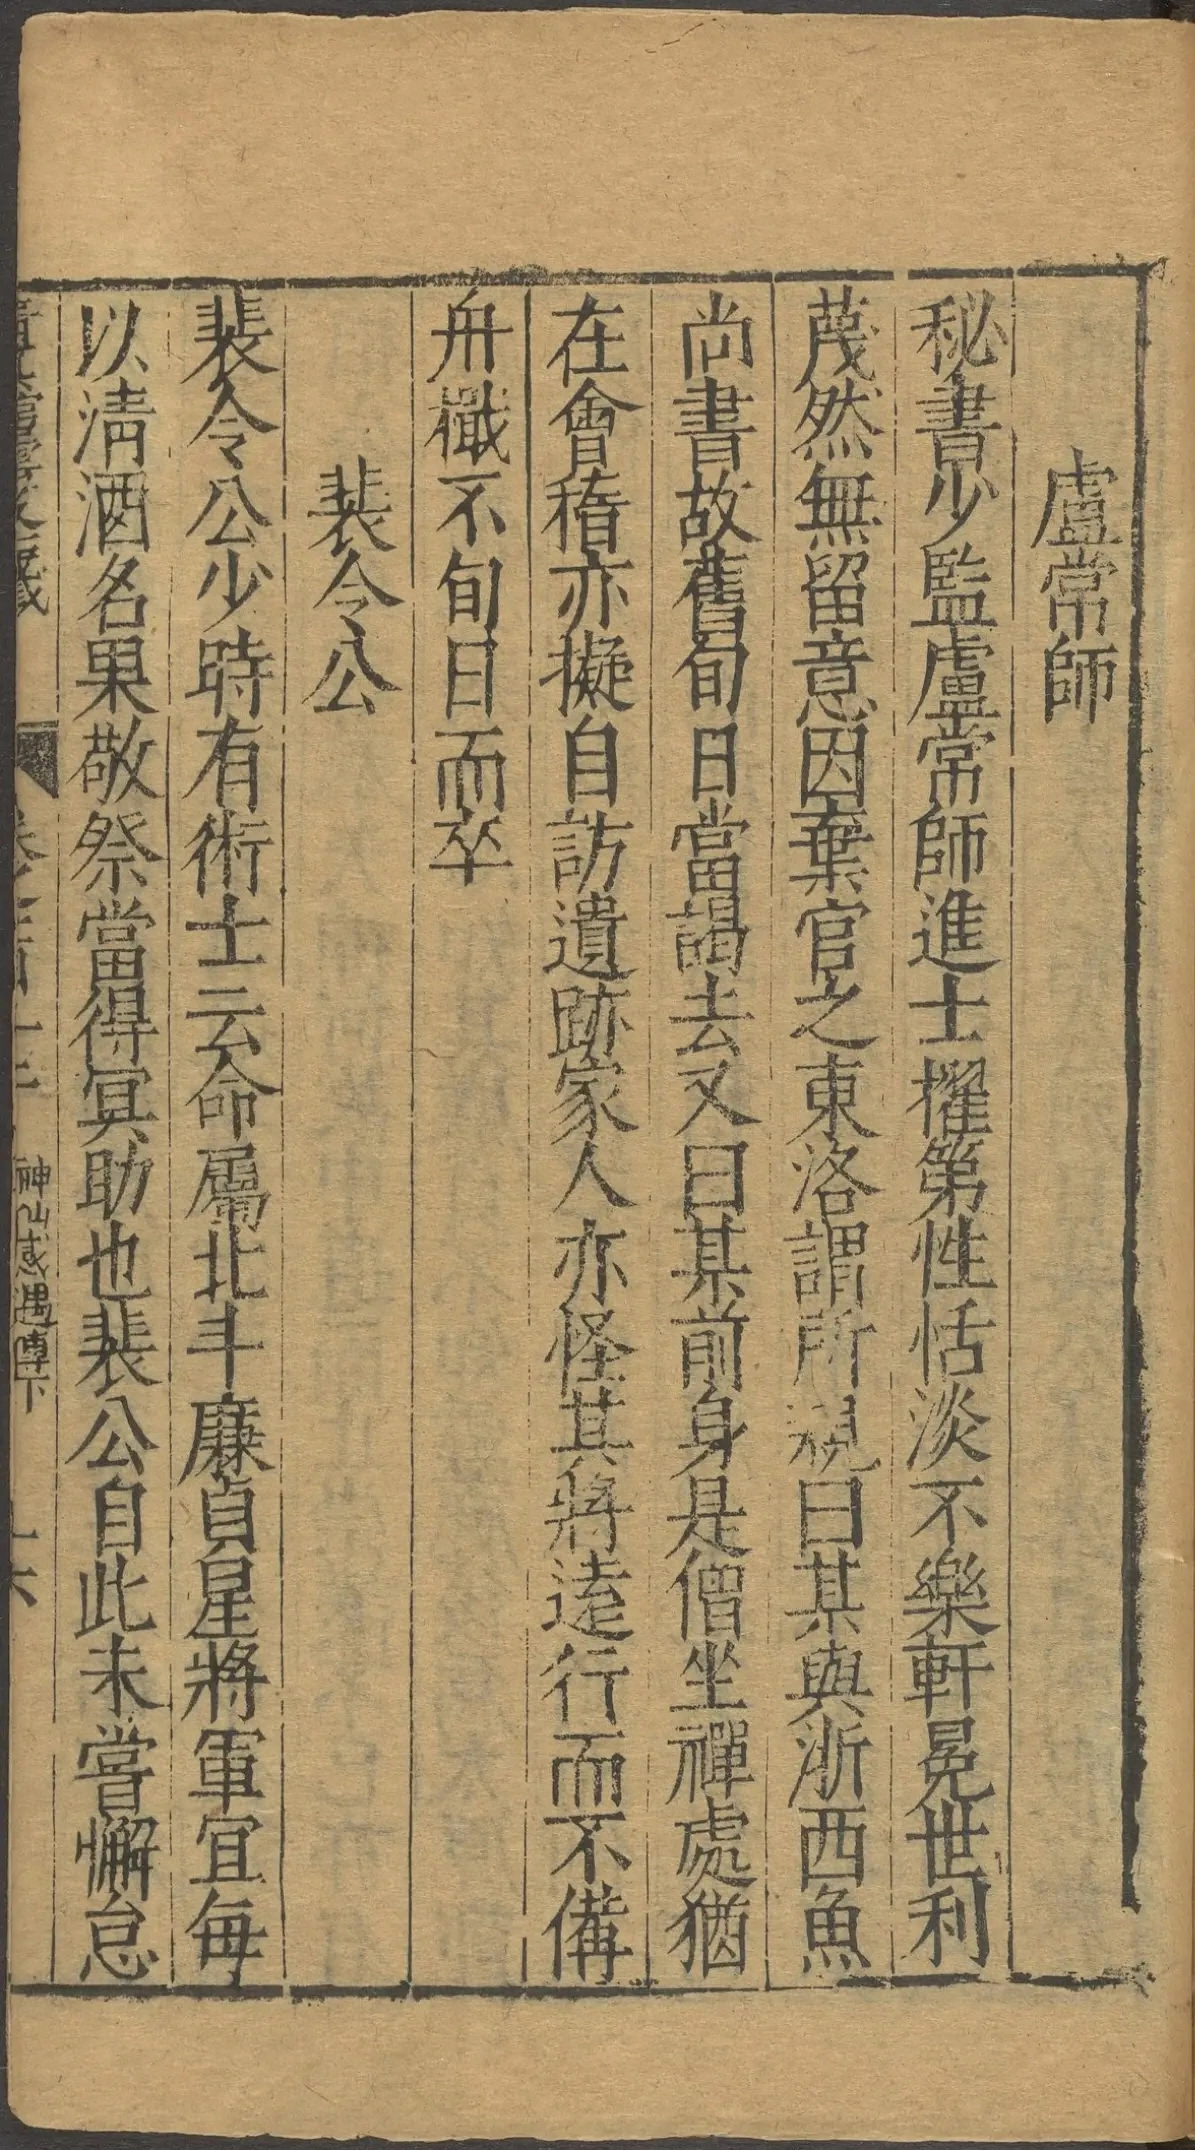 盧常師
秘書少監盧常師進士擢第性恬淡不樂軒冕世利
蔑然無留意因棄官之東洛謂所親曰某與浙西魚
尚書故舊旬日當謁去又曰某前身是僧坐禪處猶
在會稽亦擬自訪遺跡家人亦怪其將遠行而不備
舟檝不旬日而卒
裴令公
裴令公少時有術士云命屬北斗廉貞星將軍宜每
以清酒名果敬祭當得冥助也裴公自此未嘗懈怠
神仙感遇傳下